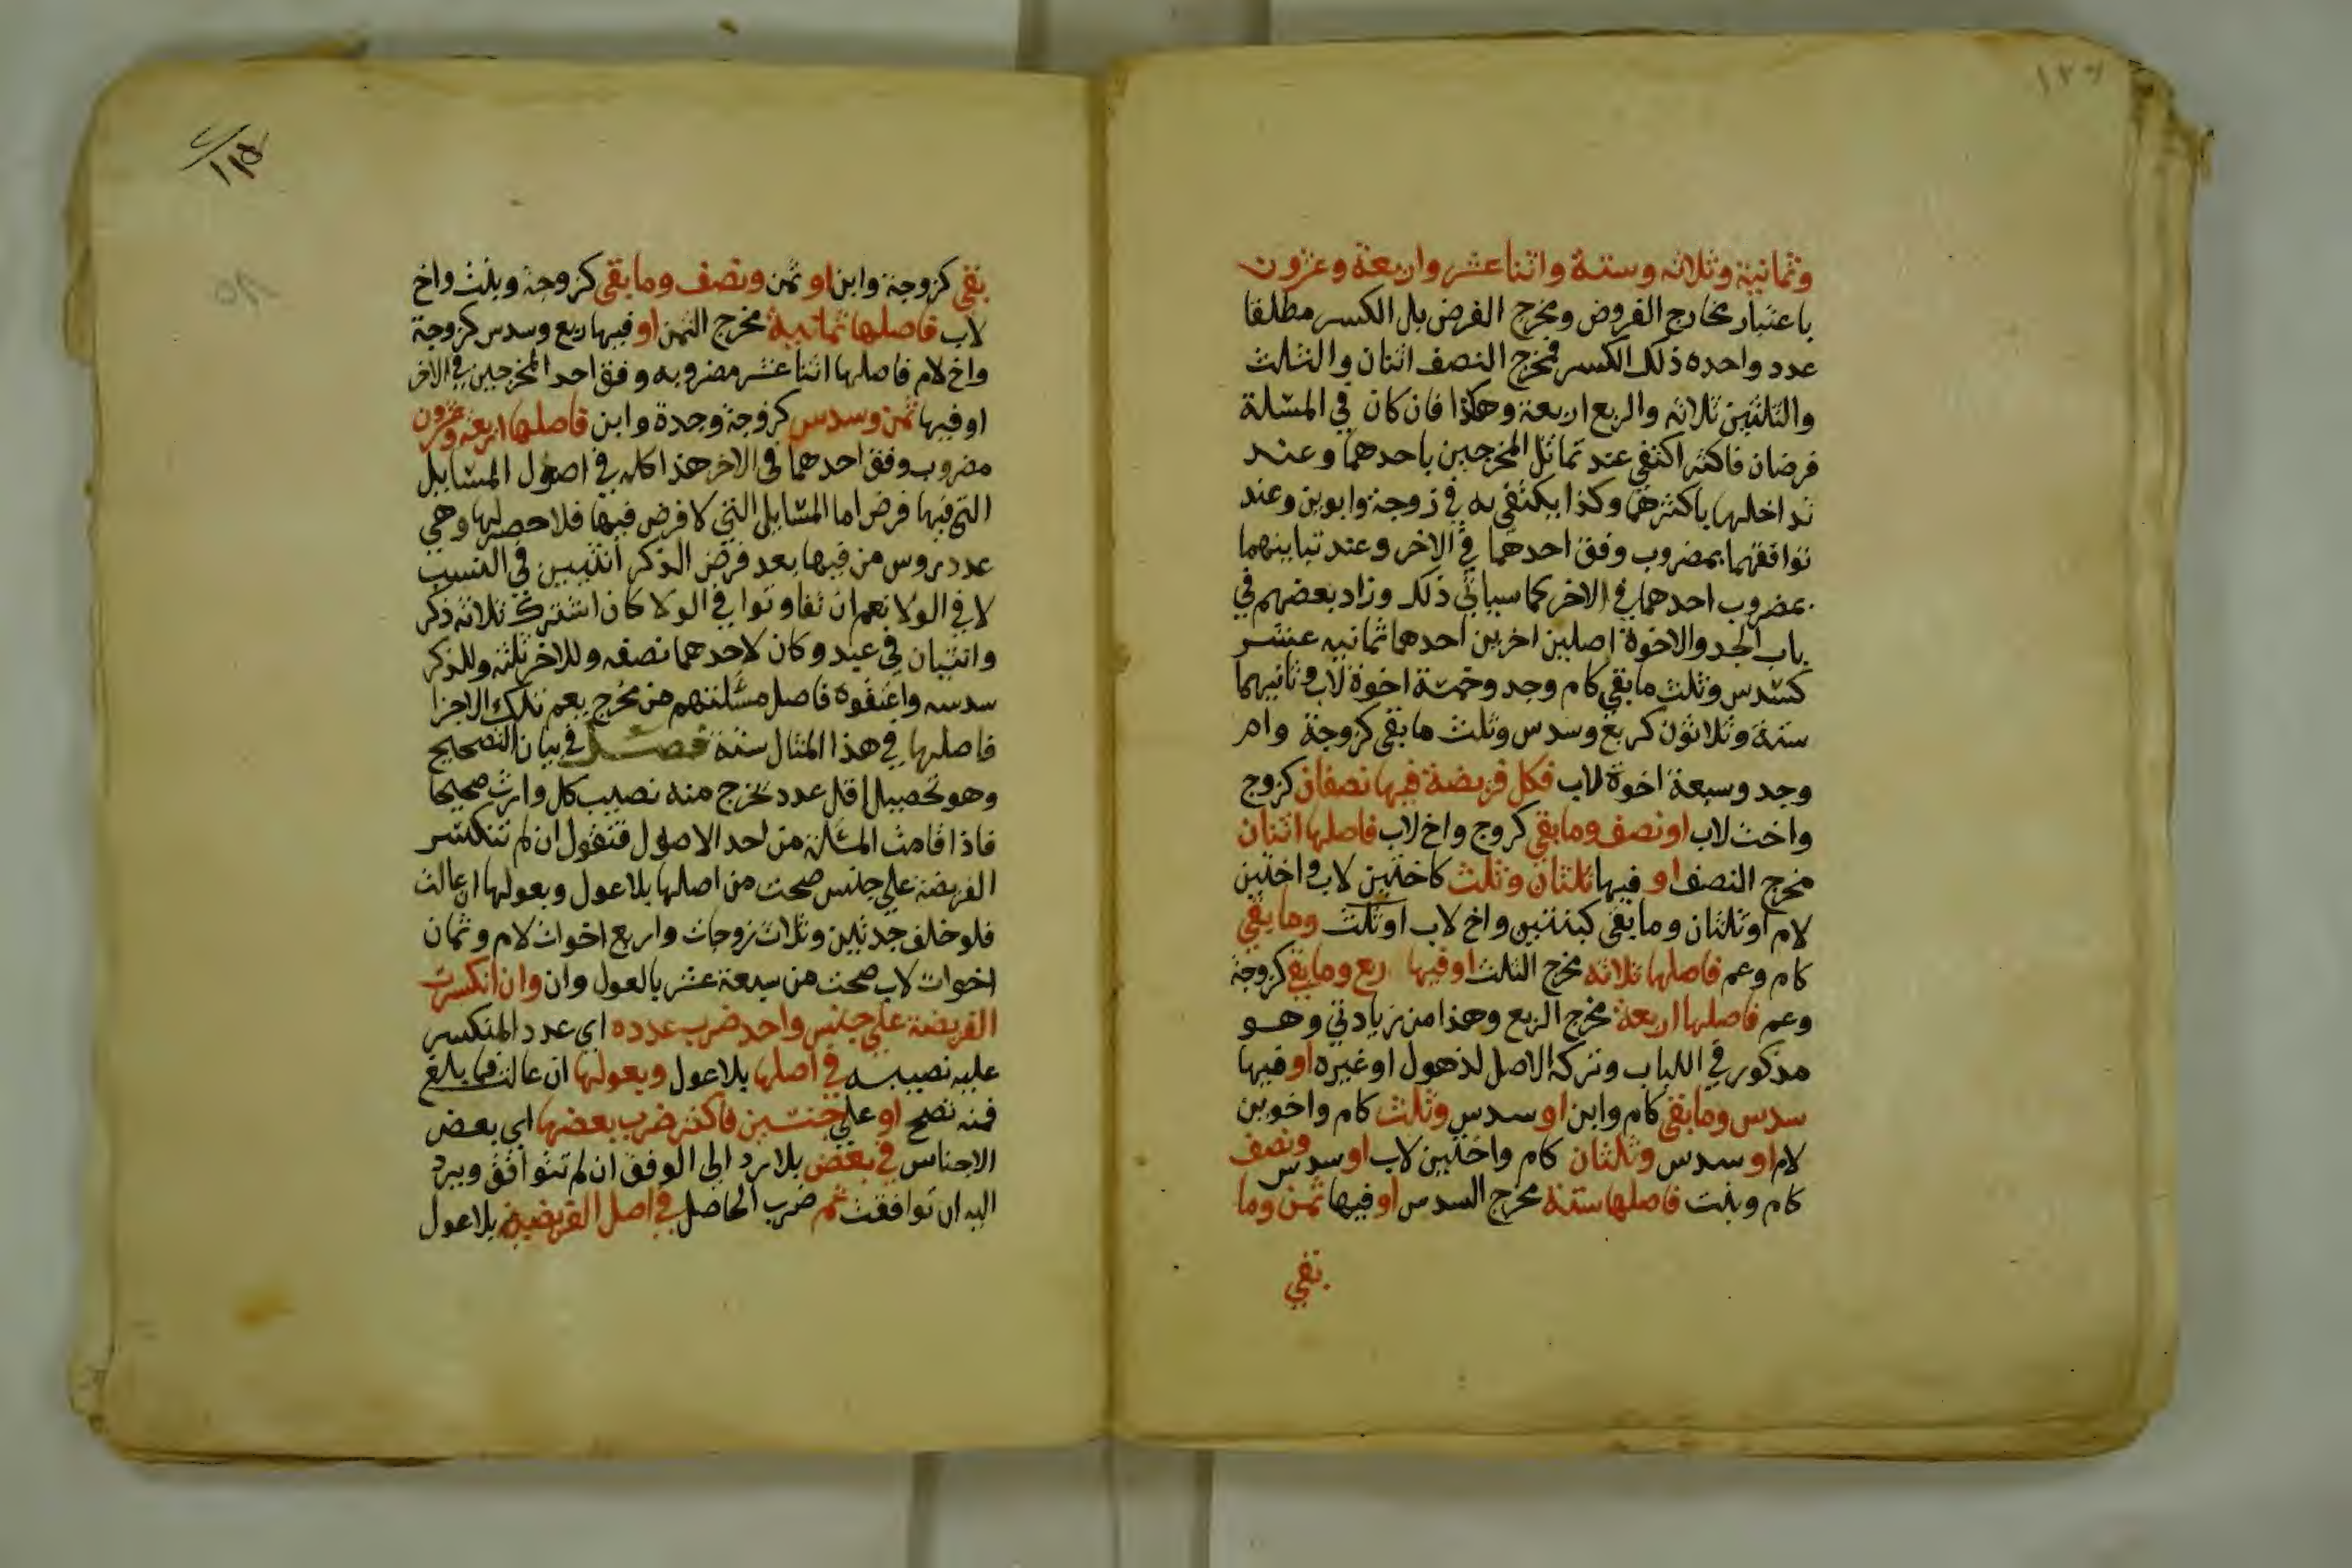 وثمانية وثلاثه وستة واثنا عشر واربعة وعشرون
باعتبار مخارج الفروض ومخرج الفرض بل الكسر مطلقا
عدد واحده ذلك الكسر فمخرج النصف اثنان والثلث
والثلثين ثلاثه والربع اربعة وهكذا فان كان في المسئلة
فرضان فاكثر اكتفي عند تماثل المخرجين باحدهما وعند
تداخلهما باكثرهما وكذا يكتفى به في زوجة وابوين وعند
توافقهما بمضروب وفق احدهما في الاخر وعند تباينهما
بمضروب احدهما في الاخر كما سياتي ذلك وزاد بعضهم في
باب الجد والاخوة اصلين اخرين احدهما ثمانيه عشر
كسدس وثلث ما بقي كام وجد وخمسة اخوة لاب وثانيهما
ستة وثلاثون كربع وسدس وثلث ما بقى كزوجة وام
وجد وسبعة اخوة لاب فكل فريضة فيها نصفان كزوج
واخت لاب او نصف وما بقي كزوج واخ لاب فاصلها اثنان
مخرج النصف او فيها ثلثان وثلث كاختين لاب واختين
لام او ثلثان وما بقى كبنتين واخ لاب او ثلث وما بقي
كام وعم فاصلها ثلاثه مخرج الثلث او فيها ربع وما بقي كزوجة
وعم فاصلها اربعة مخرج الربع وهذا من زيادتي وهو
مذكور في اللباب وتركه الاصل لذهول او غيره او فيها
سدس وما بقي كام وابن او سدس وثلث كام واخوين
لام او سدس وثلثان كام واختين لاب او سدس ونصف
كام وبنت فاصلها ستة مخرج السدس او فيها ثمن وما
بقي
بقي كزوجة وابن او ثمن ونصف وما بقى كزوجة وبنت واخ
لاب فاصلها ثمانية مخرج الثمن او فيها ربع وسدس كزوجة
واخ لام فاصلها اثنا عشر مضروبه وفق احد المخرجين في الاخر
او فيها ثمن وسدس كزوجة وجدة وابن فاصلها اربعة وعشرون
مضروب وفق احدهما في الاخر هذا كله في اصول المسايل
التي فيها فرض اما المسايل التي لا فرض فيها فلا حصر لها وهي
عدد روس من فيها بعد فرض الذكر انثيين في النسب
لا في الولا نعم ان تفاوتوا في الولا كان اشترك ثلاثه ذكر
وانثيان في عبد وكان لاحدهما نصفه وللاخر ثلثه وللذكر
سدسه واعتقوه فاصل مسئلتهم من مخرج يعم تلك الاجزا
فاصلها في هذا المثال ستة فصل في بيان التصحيح
وهو تحصيل اقل عدد يخرج منه نصيب كل وارث صحيحا
فاذا قامت المسئلة من احد الاصول فتقول ان لم تنكسر
الفريضة علي جنس صحت من اصلها بلا عول وبعولها ان عالت
فلو خلف جدتين وثلاث زوجات واربع اخوات لام وثمان
اخوات لاب صحت من سبعة عشر بالعول وان وان انكسرت
الفريضة علي جنس واحد ضرب عدده اي عدد المنكسر
عليه نصيبه في اصلها بلا عول وبعولها ان عالت فما بلغ
فمنه تصح او علي جنسين فاكثر ضرب بعضها اي بعض
الاجناس في بعض بلا رد الى الوفق ان لم تتوافق ويرد
اليه ان توافقت ثم ضرب الحاصل في اصل الفريضة بلا عول